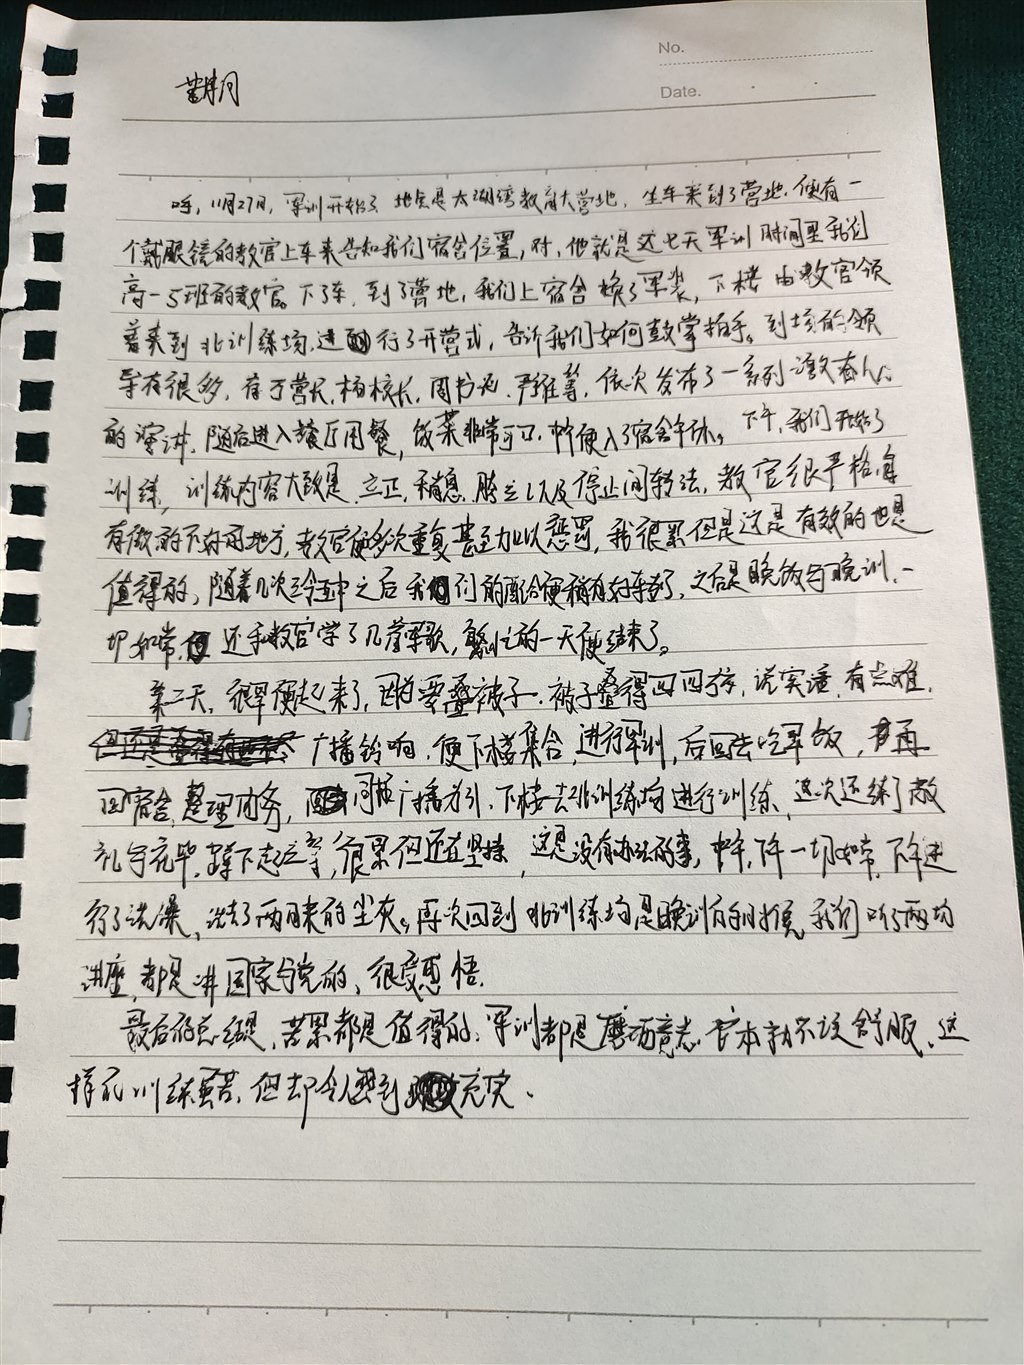 No.
Date.
呼，11月27日，军训开始了，地点是太湖湾教育大营地，坐车来到了营地，便有一
个戴眼镜的教官上车来告知我们宿舍位置，对，他就是这七天军训时间里我们
高一5班的教官。下了车，到了营地，我们上宿舍换了军装，下楼由教官领
着来到北训练场，进行了开营式，告诉我们如何鼓掌拍手。到场的领
导有很多，有于营长，杨校长，周书记，严维等，依次发布了一系列激奋人心
的演讲，随后进入餐厅用餐，饭菜非常可口，中午便入了宿舍午休。下午，我们开始了
训练，训练内容大致是，立正，稍息，跨立以及停止间转法，教官很严格，每
有做的不好的地方，教官便多次重复甚至加以惩罚，我很累但是这是有效的也是
值得的，随着几次 之后我们的配合便稍有好转了，之后是晚饭与晚训，一
切如常，还和教官学了几首军歌，繁忙的一天便结束了。
第二天，很早便起来了，因为要叠被子，被子叠得四四方方，说实话，有点难，
广播铃响，便下楼集合，进行早训，后回去吃早饭，再
回宿舍，整理内务，同样广播为引，下楼去北训练场进行训练，这次还练了敬
礼与礼毕，蹲下起立等，很累但还在坚持，这是没有办法的事，中午，下午一切如常，下午进
行了洗澡，洗去了两日来的尘灰。再次回到北训练场是晚训的时候，我们听了两场
讲座，都是讲国家与党的，很受感悟。
最后的总结是，苦累都是值得的，军训都是磨砺意志，它本就不该舒服，这
样的训练虽苦，但却令人感到充实。